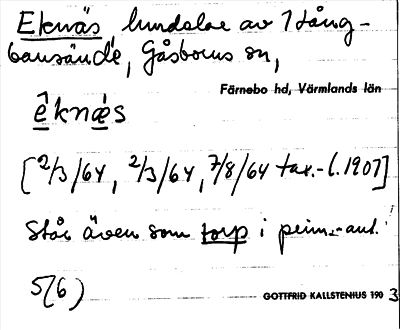 Eknäs lundelar av Tång-
bansände, Gåsborns sn,
Färnebo hd, Värmlands län
êknǽs
[2/3/64, 2/3/64, 7/8/64 tax.-l. 1907]
Står även som torp i prim.-ant.
5(6)
GOTTFRID KALLSTENIUS 190 3